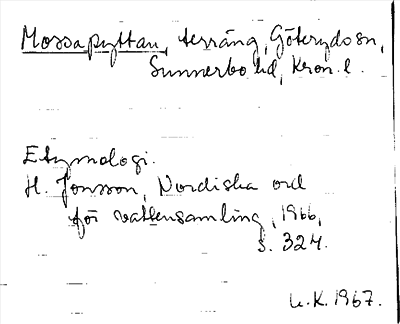 Mossapyttan, terräng, Göteryds sn,
Sunnerbo hd, Kron. l.
Etymologi.
H. Jonsson, Nordiska ord
för vattensamling, 1966,
s. 324.
L.K. 1967.